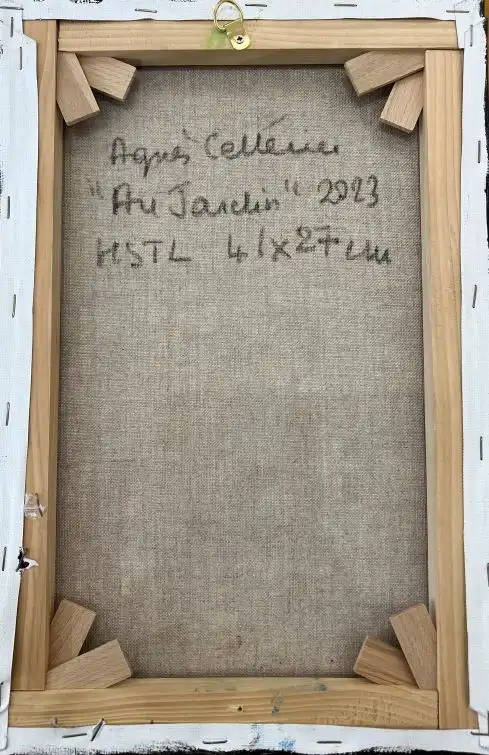 Agnès Cellérier
"Au Jardin" 2023
HSTL 41x27cm